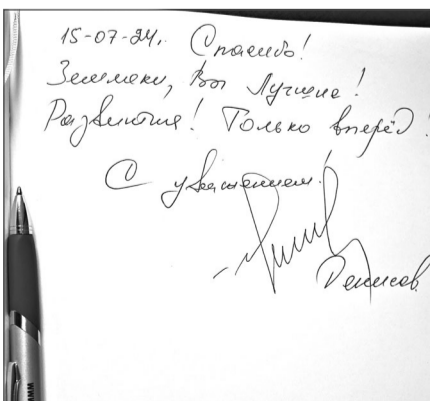 15-07-24. Спасибо!
Земляки, Вы Лучшие!
Развития! Только вперёд!
С уважением!
Денисов